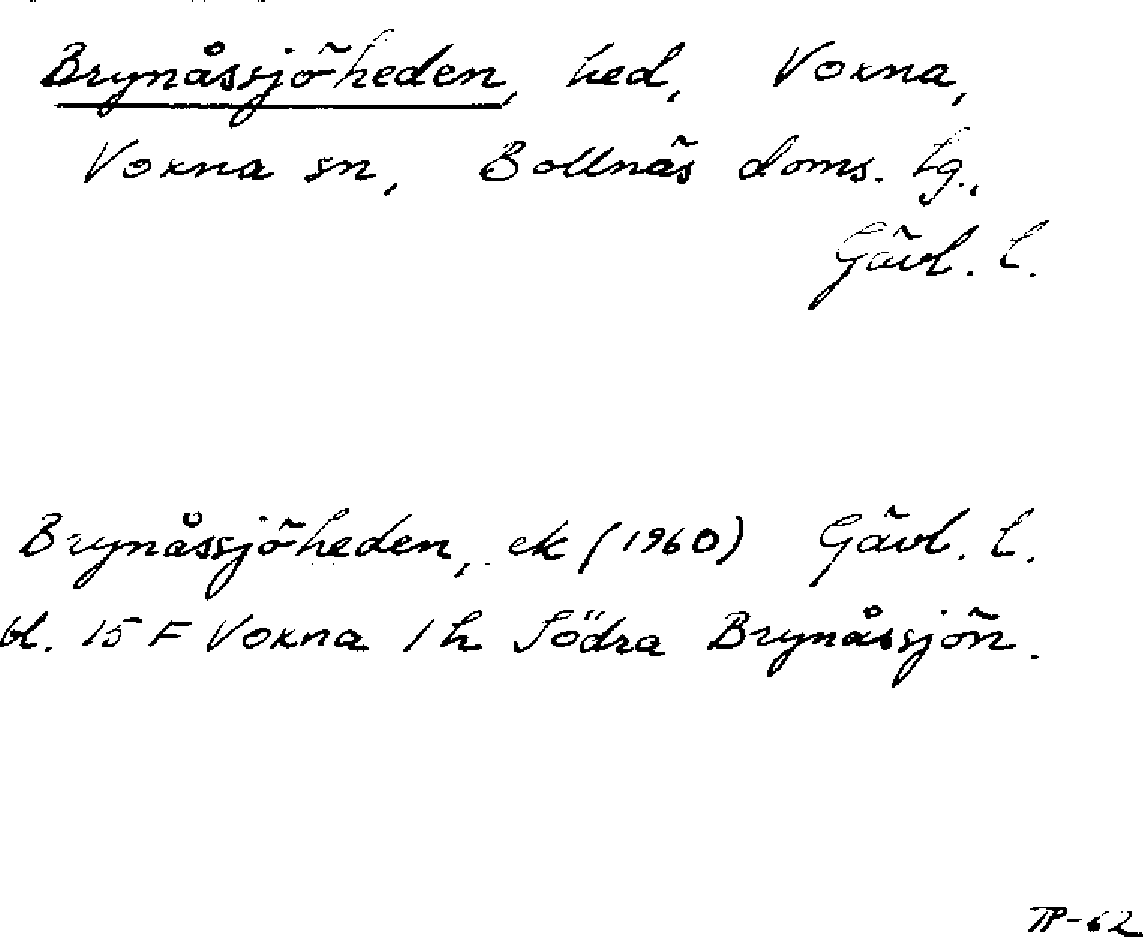 Brynåssjöheden, hed, Voxna,
Voxna sn, Bollnäs doms. tg.,
Gävl. l.
Brynåssjöheden, ek (1960) Gävl. l.
bl. 15 F Voxna 1h Södra Brynåssjön.
TP-62